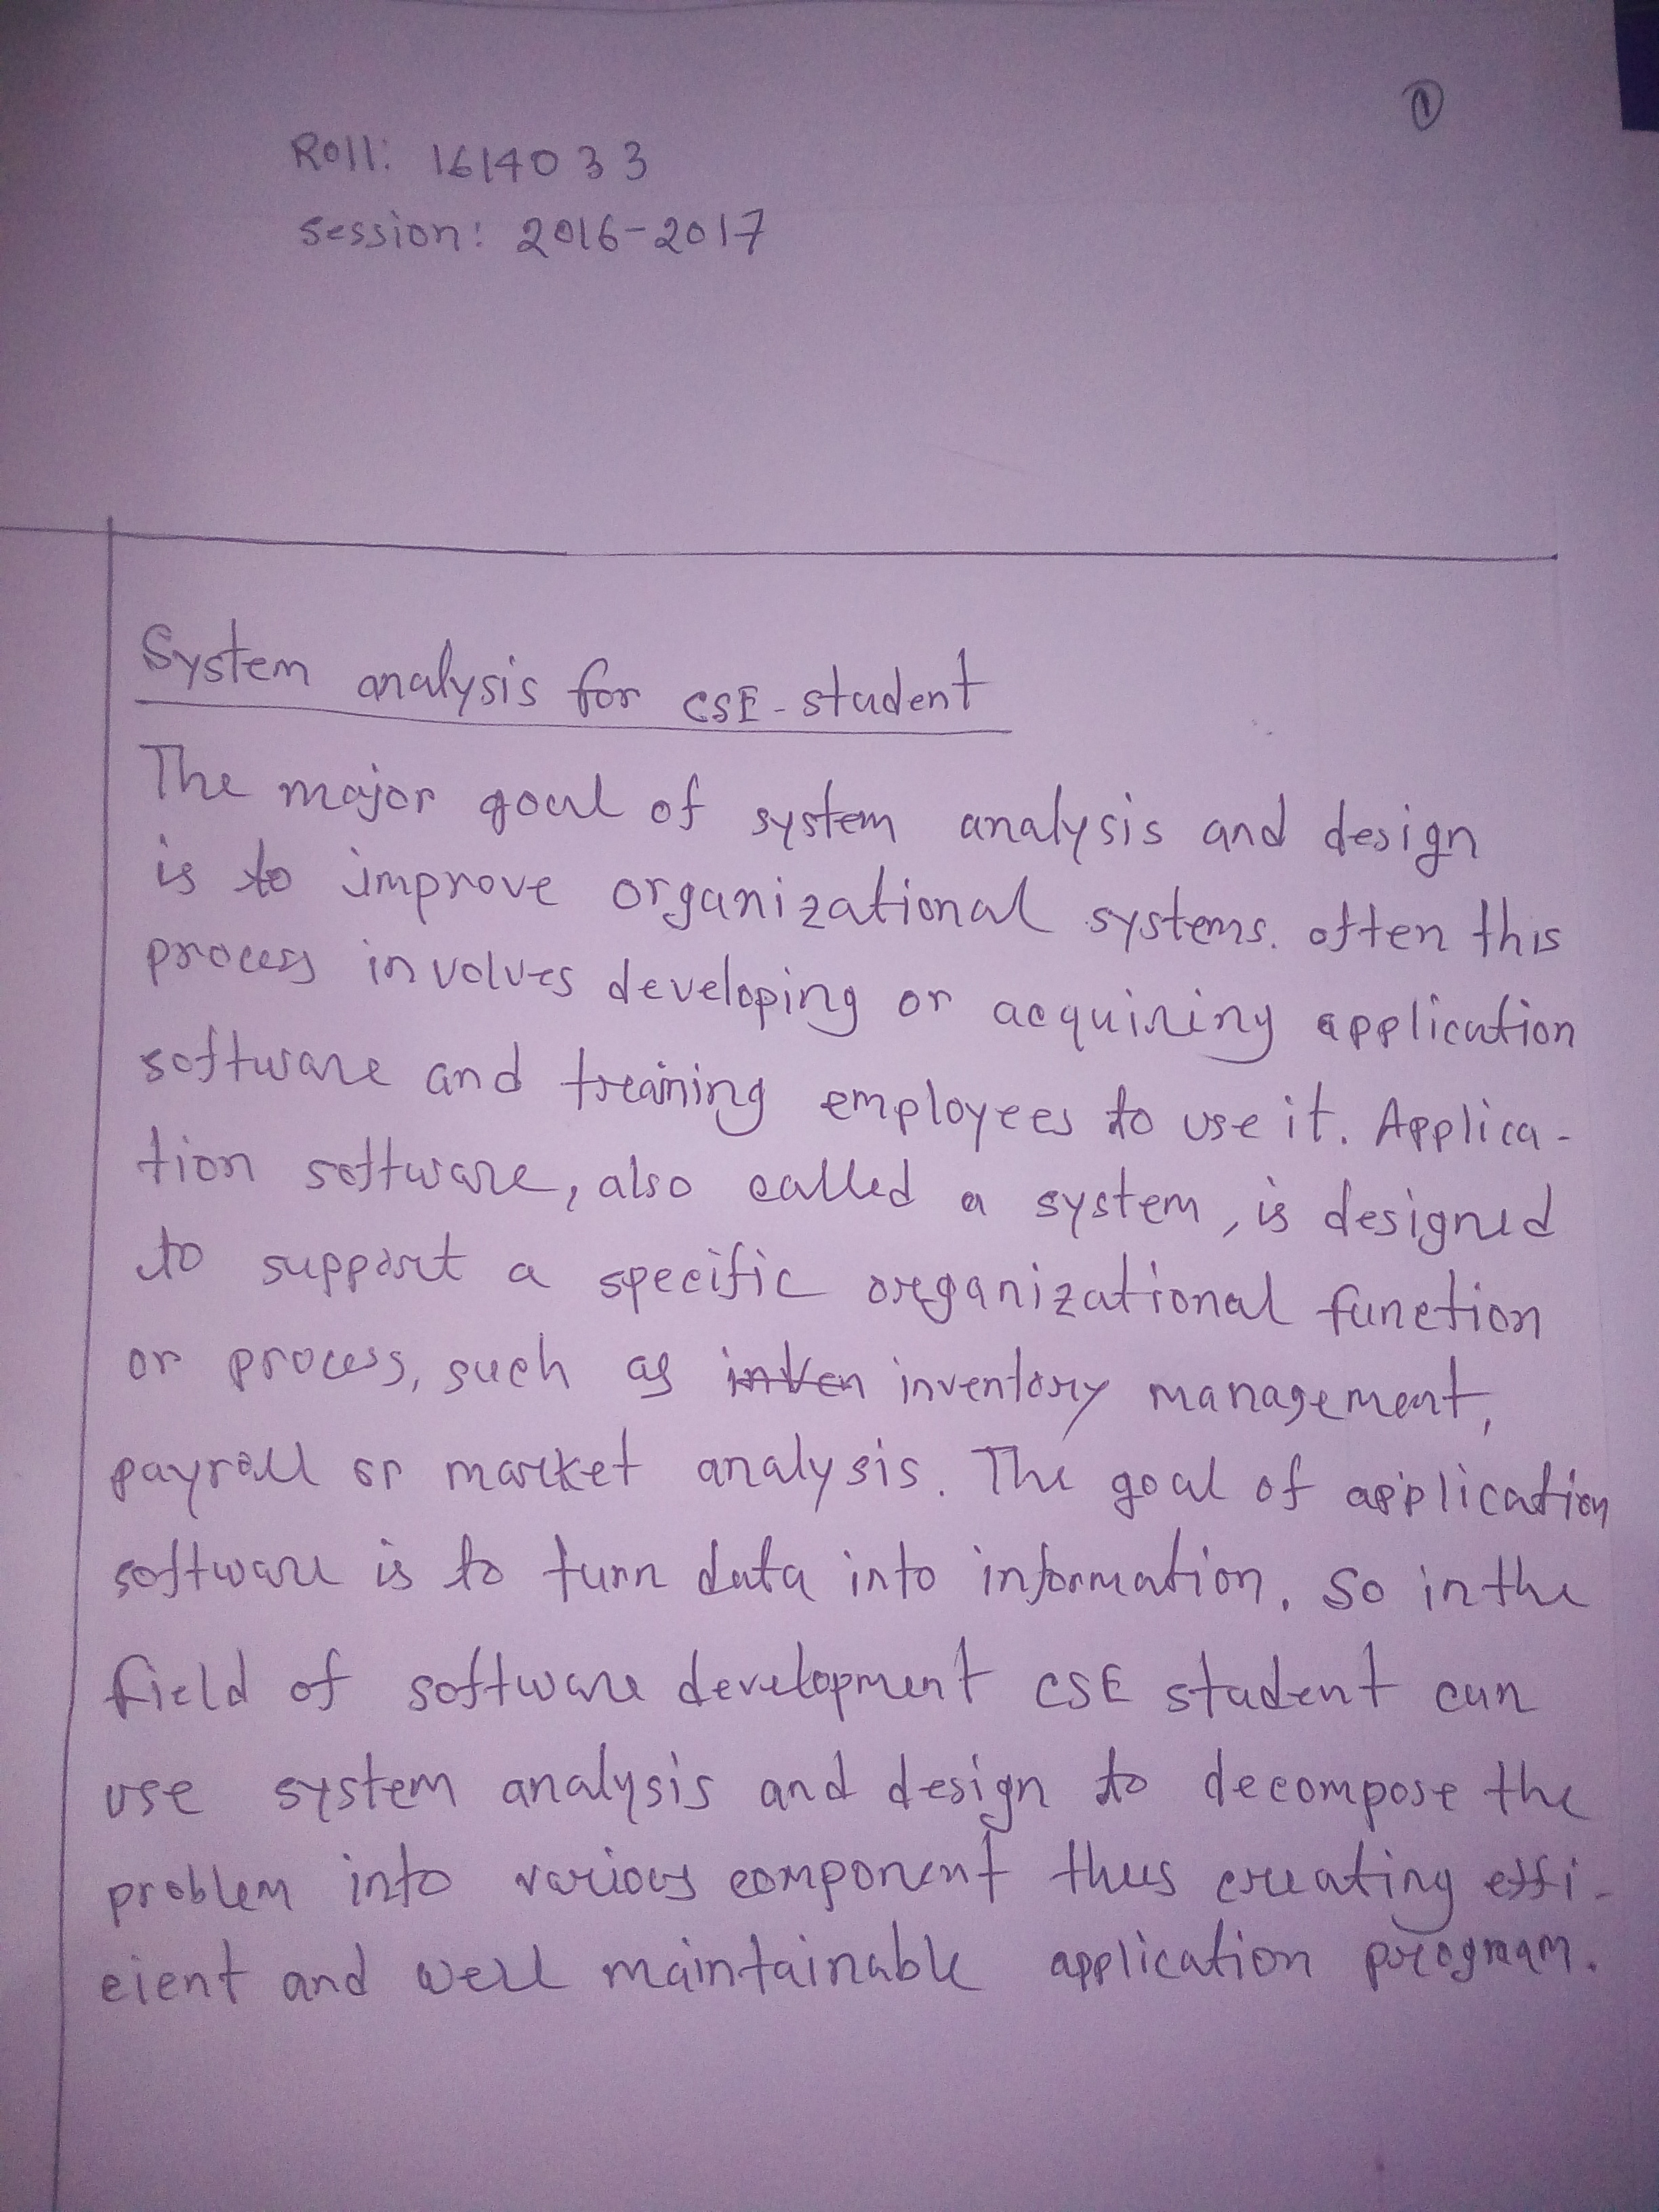 ①
Roll: 1614033
Session: 2016-2017
System analysis for CSE-student
The major goal of system analysis and design
is to improve organizational systems. often this
process involves developing or acquiring application
software and training employees to use it. Applica-
tion software, also called a system, is designed
to support a specific organizational function
or process, such as inven inventory management,
payroll or market analysis. The goal of application
software is to turn data into information. So in the
field of software development CSE student can
use system analysis and design to decompose the
problem into various component thus creating effi-
cient and well maintainable application program.